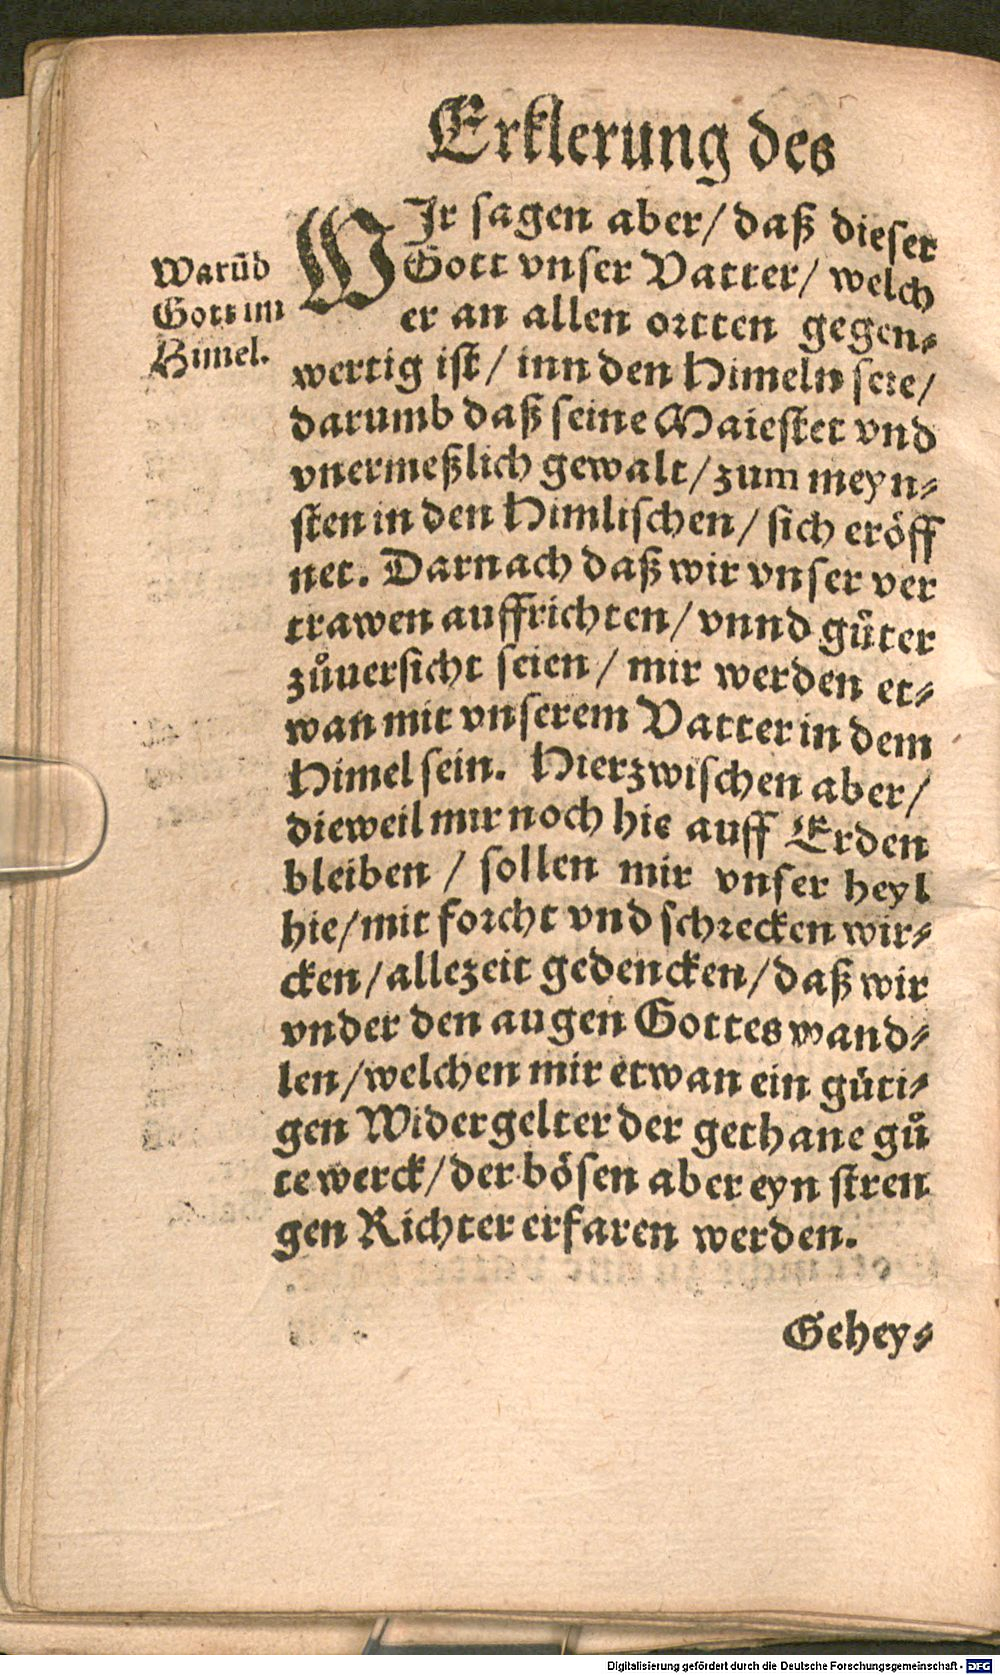 Erklerung des
WIr sagen aber/ daß dieser
Gott vnser Vatter/ welch
er an allen ortten gegen⸗
wertig ist/ inn den Himeln seie/
darumb daß seine Maiestet vnd
vnermeßlich gewalt/ zum meyn⸗
sten in den Himlischen/ sich eröff
net. Darnach daß wir vnser ver
trawen auffrichten/ vnnd guͦter
zuͦuersicht seien/ mir werden et⸗
wan mit vnserem Vatter in dem
Himel sein. Hierzwischen aber/
dieweil mir noch hie auff Erden
bleiben/ sollen mir vnser heyl
hie/ mit forcht vnd schrecken wir⸗
cken/ allezeit gedencken/ daß wir
vnder den augen Gottes wand⸗
len/ welchen mir etwan ein güti⸗
gen Widergelter der gethane guͦ
te werck/ der bösen aber eyn stren
gen Richter erfaren werden.
Warūb
Gott im
Himel.
Gehey⸗
Digitalisierung gefördert durch die Deutsche Forschungsgemeinschaft - DFG